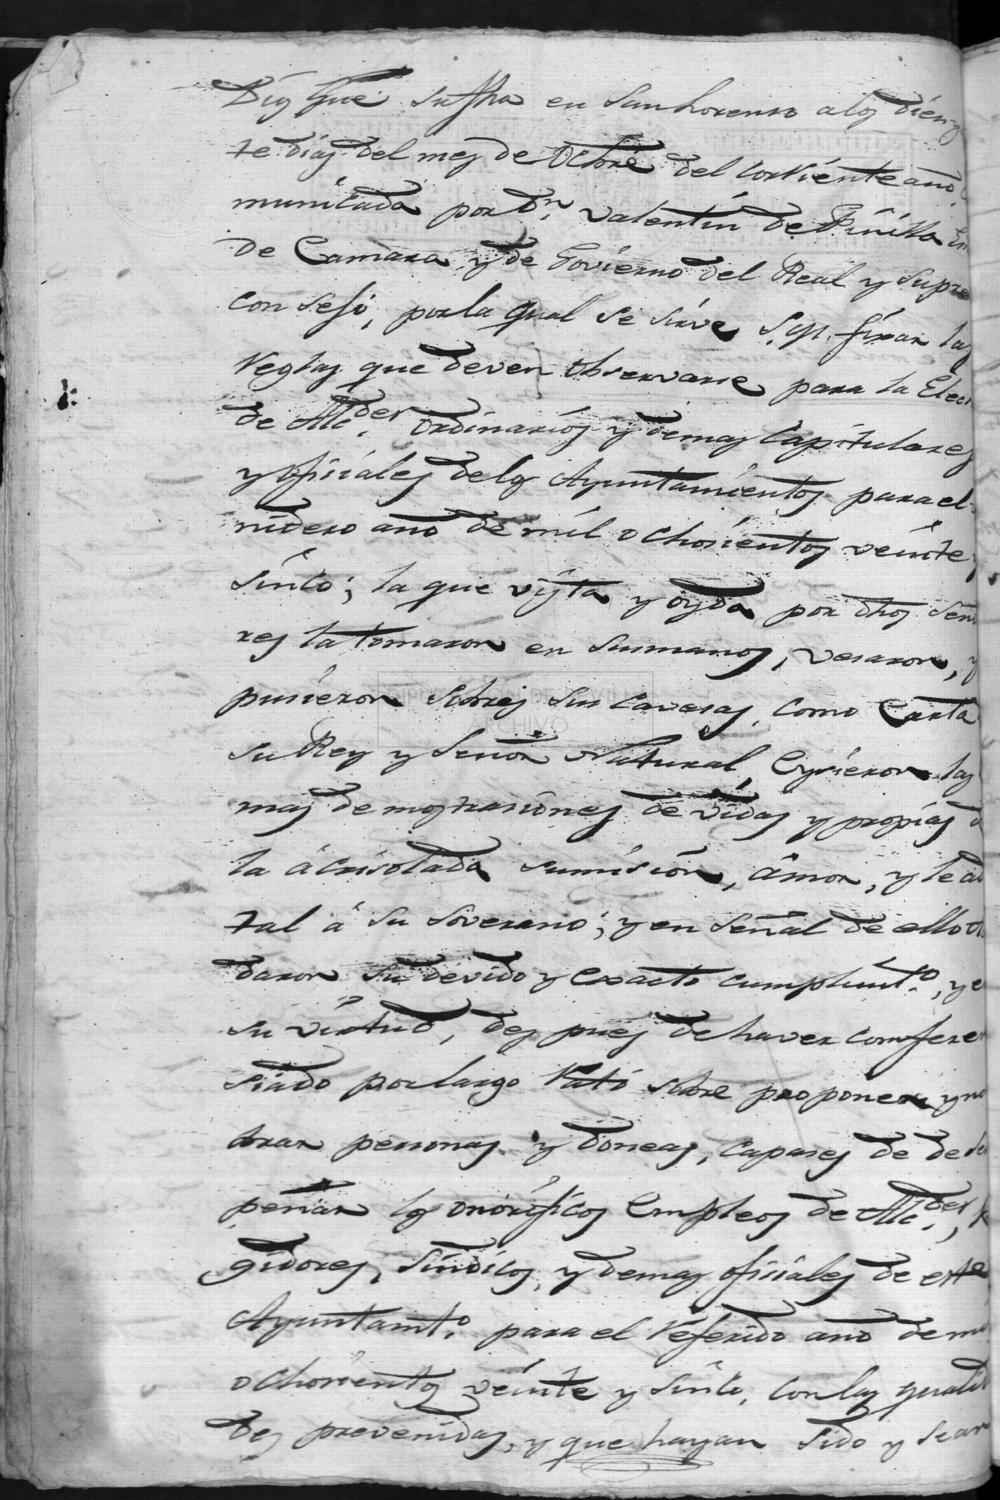 Dios Gue su fha en San Lorenso a los dies y
te dias del mes de Octbre del corriente año,
municada por Dn. Valentin de Pinilla
de Camara y de Govierno del Real y Supre
Consejo, por la qual se sirve S.M. fixar las
Reglas que deven observarse para la Elec
de Alcdes. ordinarios y demas Capitulares
y oficiales de los Ayuntamientos para el
nidero año de mil ochosientos veinte y
sinco; la que vista y oyda por dhos señ
res la tomaron en sus manos, vesaron, y
pusieron sobres sus cavesas, como Carta
su Rey y Señor Natural, Cryieron las
mas demostrasiones devidas y propias d
la acrisolada sumision, amor, y leal
tad a su Soverano; y en señal de ello
daron su devido y exacto cumplimto., y e
su virtud, despues de haver comfere
siado por largo Rato sobre proponer y no
brar personas ydoneas, capases de dese
peñar los onorificos Empleos de Alcdes., Re
gidores, Sindicos, y demas ofisiales de este
Ayuntamto. para el Referido año de mi
ochosientos veinte y sinco, con las qualid
des prevenidas, y que hayan sido y sean